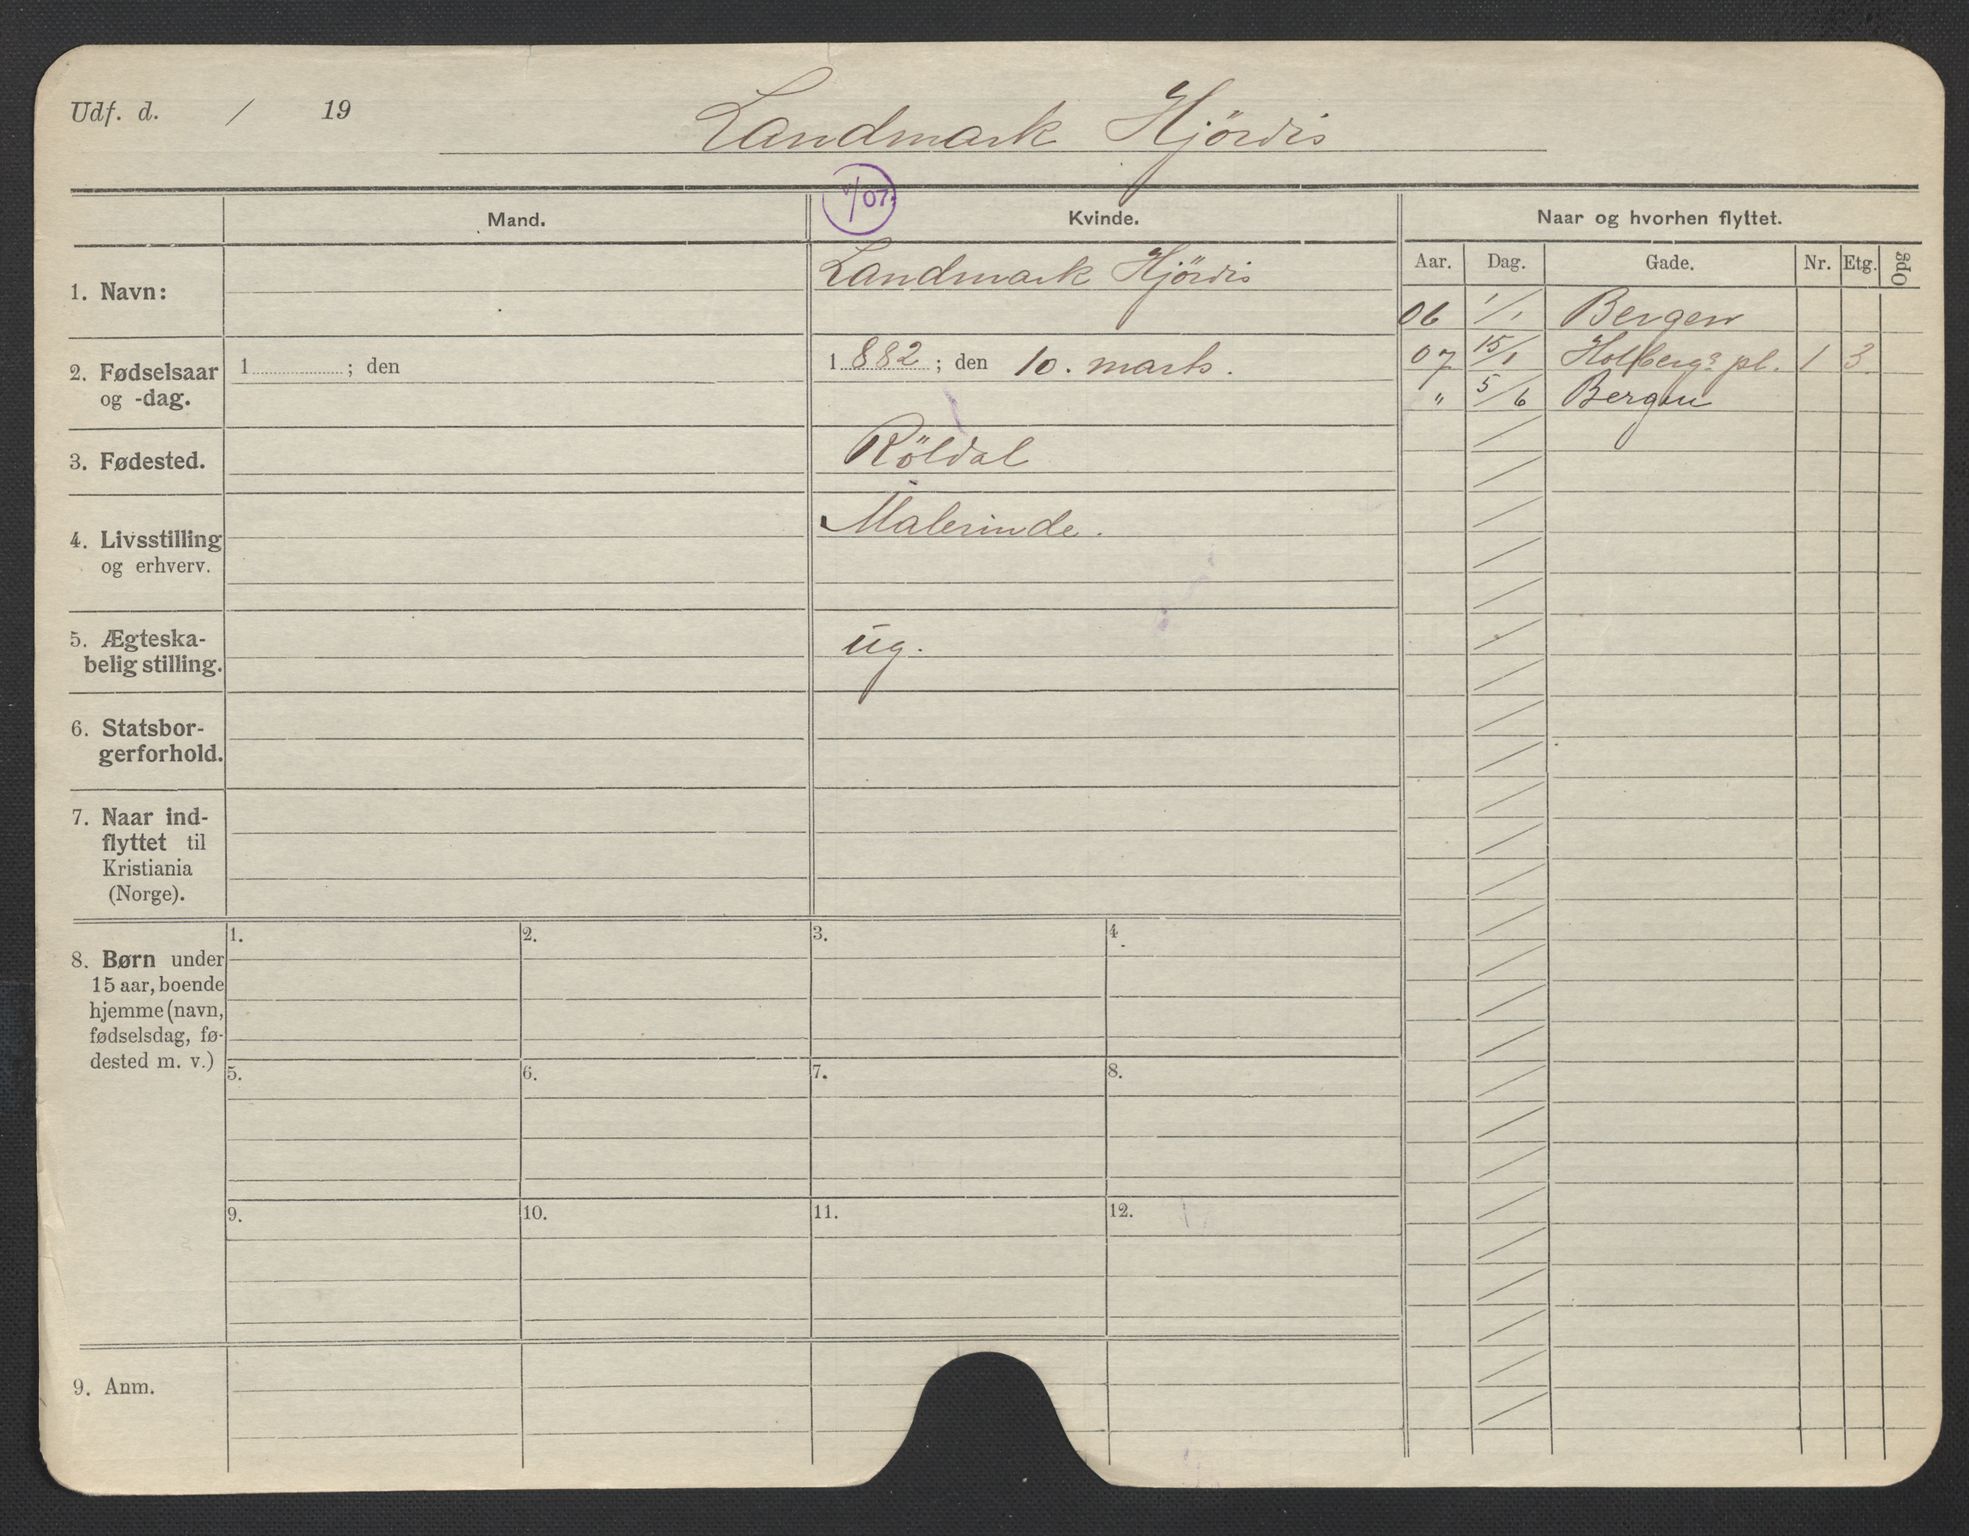 Udf. d. / 19
Landmark Hjördis
V/07.
Mand. Kvinde. Naar og hvorhen flyttet.
Aar. Dag. Gade. Nr. Etg. Opg
1. Navn: Landmark Hjördis
06 1/1 Bergen
2. Fødselsaar og -dag. 1 ; den 1882 ; den 10. marts.
07 15/1 Holbergs pl. 1 3.
" 5/6 Bergen
3. Fødested. Röldal
4. Livsstilling og erhverv. Malerinde.
5. Ægteska-
belig stilling. ug.
6. Statsbor-
gerforhold.
7. Naar ind-
flyttet til
Kristiania
(Norge).
8. Børn under
15 aar, boende
hjemme (navn,
fødselsdag, fø-
dested m. v.)
1. 2. 3. 4.
5. 6. 7. 8.
9. 10. 11. 12.
9. Anm.